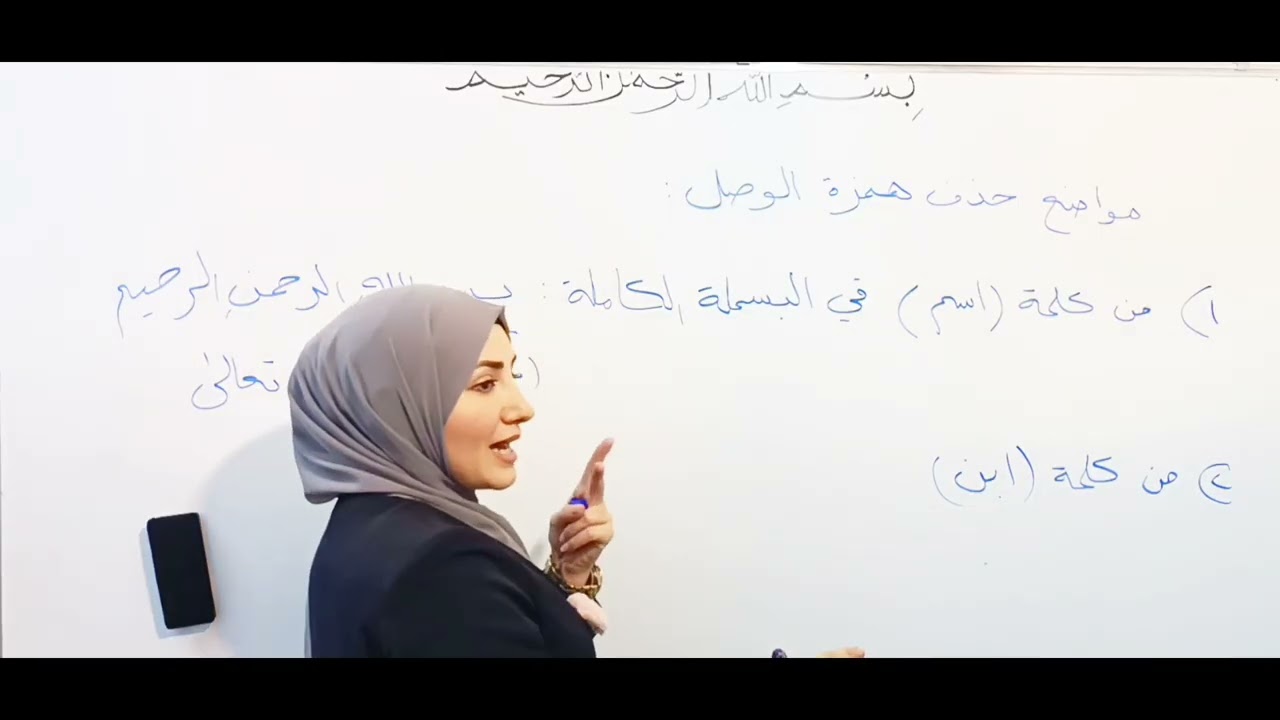 بِسْمِ اللهِ الرَّحمن الرحيم
مواضع حذف همزة الوصل :
١) من كلمة (اسم) في البسملة الكاملة : الله الرحمنِ الرحيم
تعالىٰ
٢) من كلمة (ابن)